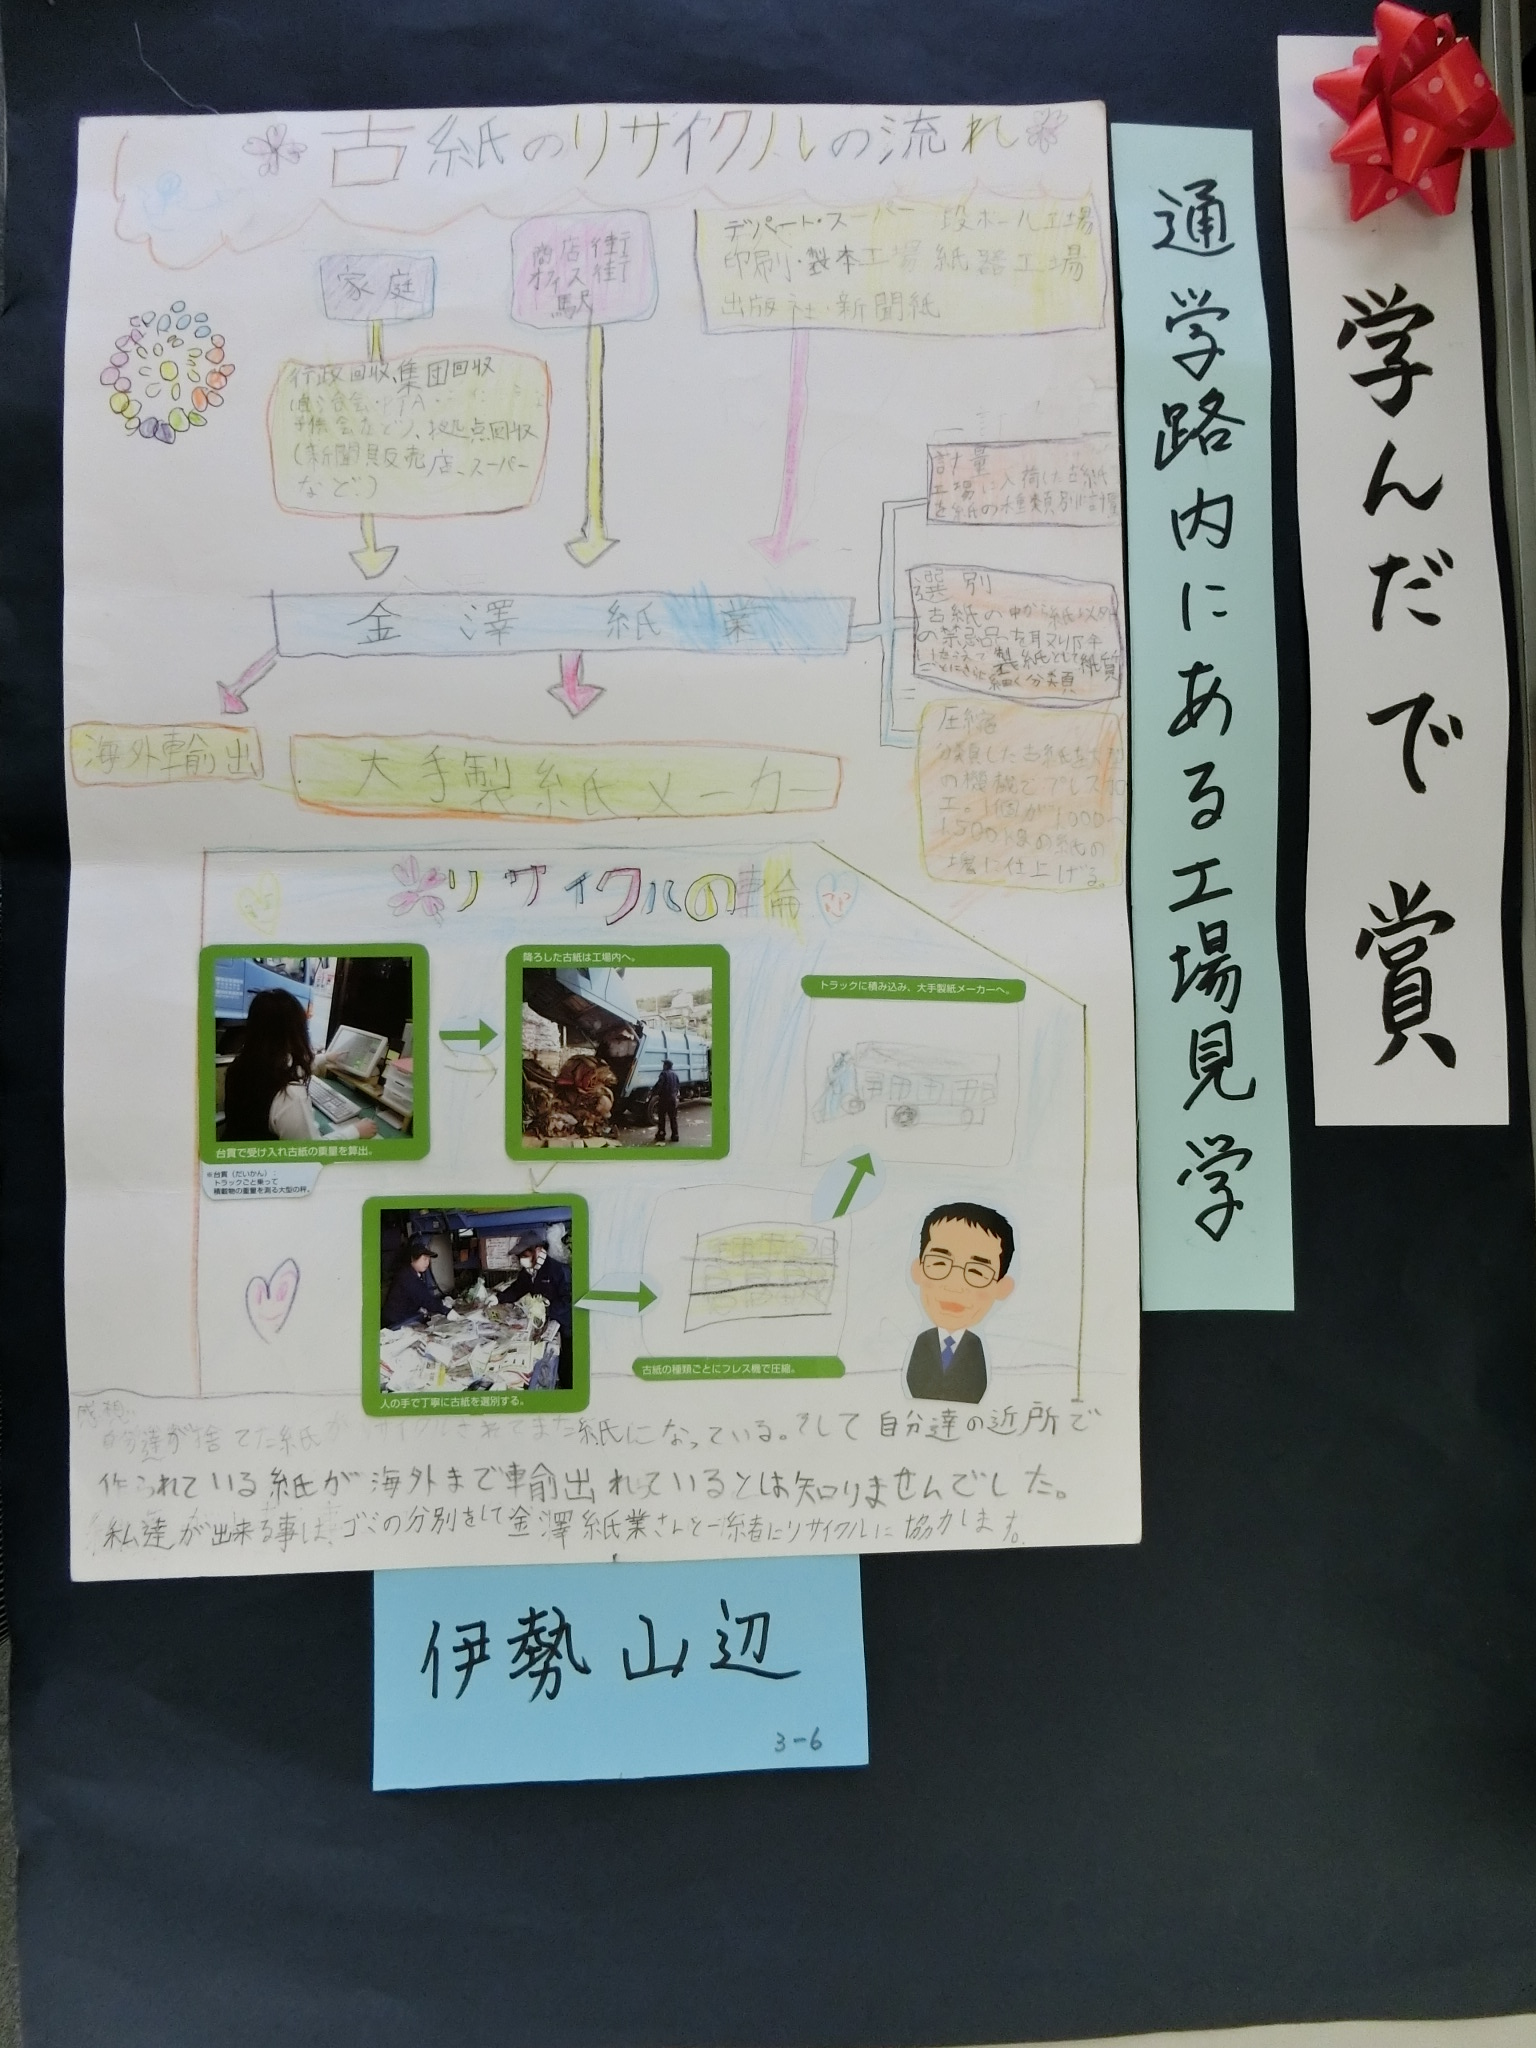 学んだで賞
通学路内にある工場見学
古紙のリサイクルの流れ
家庭
商店街
オフィス街
駅
デパート・スーパー 段ボール工場
印刷・製本工場 紙器工場
出版社・新聞紙
行政回収、集団回収
子供会など)、拠点回収
(新聞販売店、スーパー
など)
金澤紙業
計量
工場に入荷した古紙
を紙の種類別に計量
選別
古紙の中から紙以外
の禁忌品を取り除き
細く分類
圧縮
分類した古紙を大型
の機械でプレス加
工。1個が1000〜
1500kgの紙の
塊に仕上げる。
海外輸出
大手製紙メーカー
リサイクルの輪
台貫で受け入れ古紙の重量を算出。
※台貫(だいかん):
トラックごと乗って
積載物の重量を測る大型の秤。
降ろした古紙は工場内へ。
トラックに積み込み、大手製紙メーカーへ。
人の手で丁寧に古紙を選別する。
古紙の種類ごとにプレス機で圧縮。
感想
自分達が捨てた紙がリサイクルされてまた紙になっている。そして自分達の近所で
作られている紙が海外まで輸出れているとは知りませんでした。
私達が出来る事は、ゴミの分別をして金澤紙業さんと一緒にリサイクルに協力します。
伊勢山辺
3-6